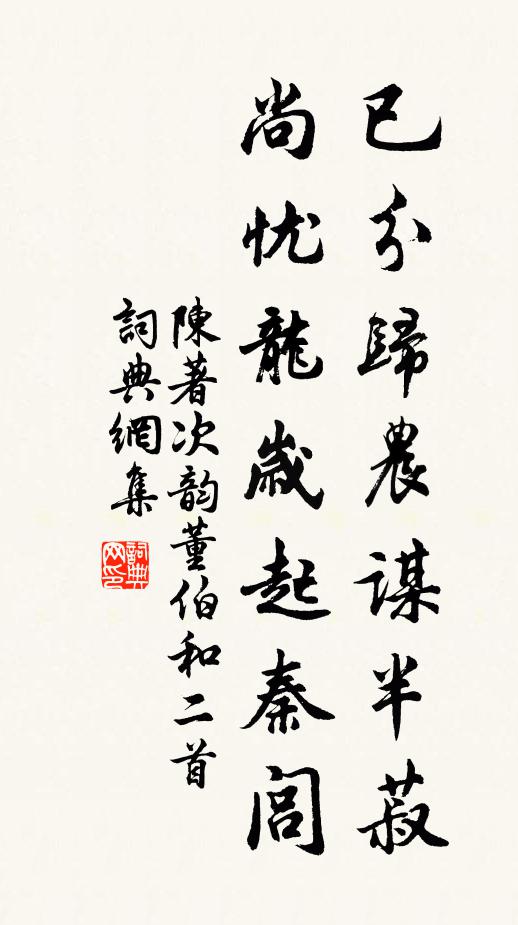 已分歸農謀半菽
尚忧龍歲起秦闾
陳著次韵董伯和二首
詞典網集
詞典网印